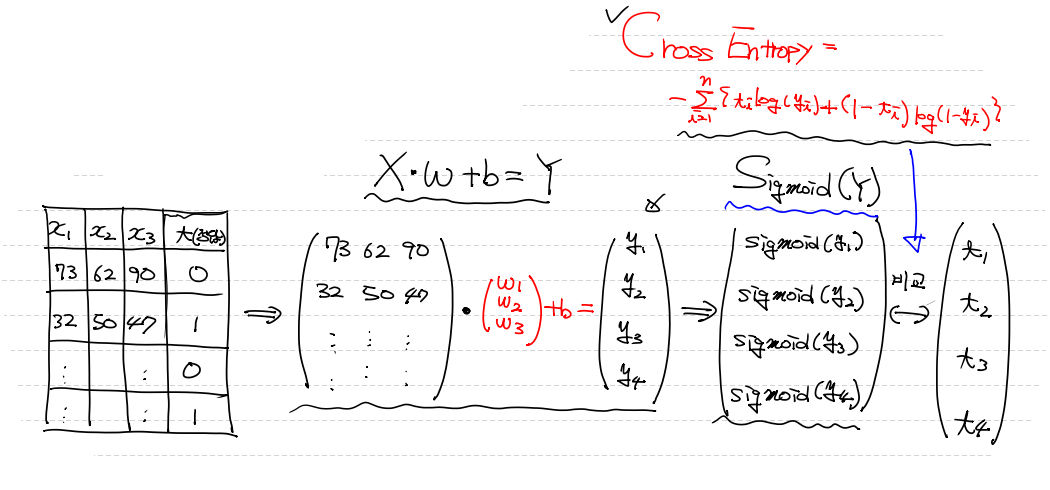 ✓ Cross Entropy =
- \sum_{i=1}^{n} {t_i log(y_i) + (1-t_i) log(1-y_i)}
X · w + b = Y
Sigmoid(Y)
x₁ x₂ x₃ t(정답)
73 62 90 0
32 50 47 1
⋮ ⋮ 0
⋮ ⋮ 1
⇒
73 62 90
32 50 47
⋮ ⋮ ⋮
⋮ ⋮ ⋮
·
w₁
w₂
w₃
+b=
y₁
y₂
y₃
y₄
⇒
sigmoid(y₁)
sigmoid(y₂)
sigmoid(y₃)
sigmoid(y₄)
비교
↔
t₁
t₂
t₃
t₄